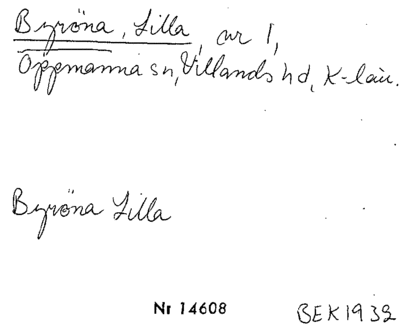 Byröna, Lilla, nr 1,
Oppmanna sn, Villands hd, K-län.
Byröna Lilla
Nr 14608
BEK1932